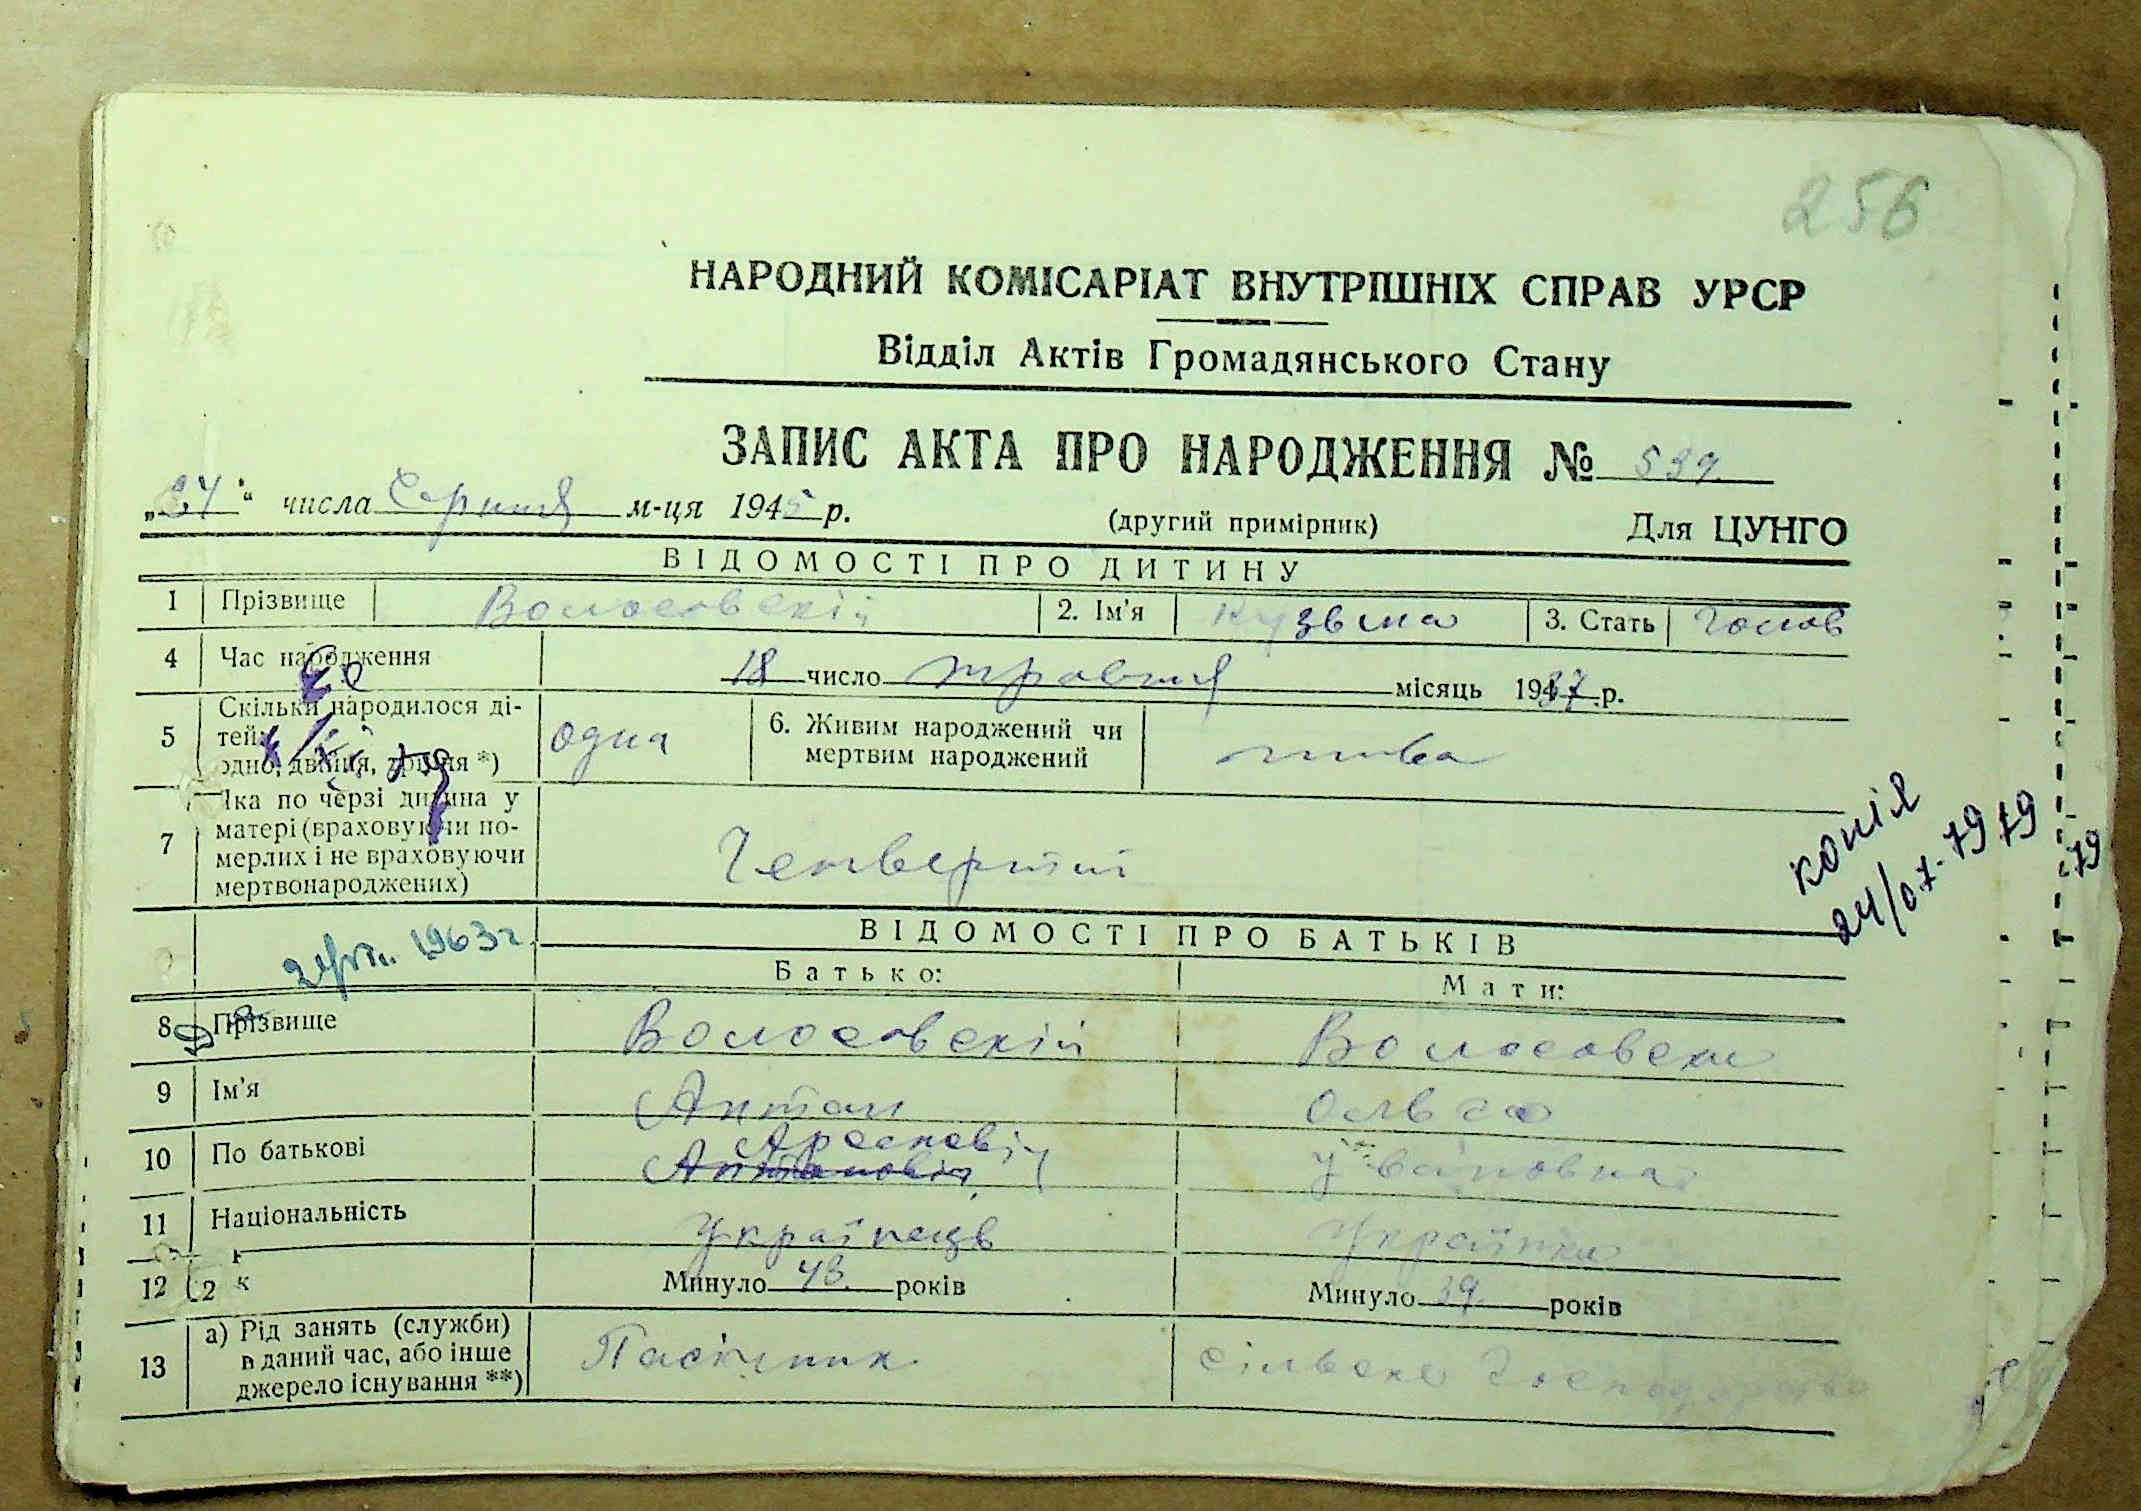 256
НАРОДНИЙ КОМІСАРІАТ ВНУТРІШНІХ СПРАВ УРСР
Відділ Актів Громадянського Стану
ЗАПИС АКТА ПРО НАРОДЖЕННЯ № 539
„24“ числа Серпня м-ця 1945 р. (другий примірник) Для ЦУНГО
ВІДОМОСТІ ПРО ДИТИНУ
1 Прізвище Волосовскій 2. Ім'я Кузьма 3. Стать Чолов
4 Час народження 18 число травня місяць 1937 р.
5 Скільки народилося ді-
тей:
одно, двійня, трійня *) одна 6. Живим народжений чи
мертвим народжений жива
7 Яка по черзі дитина у
матері (враховуючи по-
мерлих і не враховуючи
мертвонароджених) Четвертий
копія
24/07-1979 79
1963 г.
ВІДОМОСТІ ПРО БАТЬКІВ
Батько: Мати:
8 Прізвище Волосовскій Волосовска
9 Ім'я Антон Ольга
10 По батькові Антонович Івановна
11 Національність Українець Українка
12 Минуло 43 років Минуло 39 років
13 а) Рід занять (служби)
в даний час, або інше
джерело існування **) Пасічник Сільске Господарство